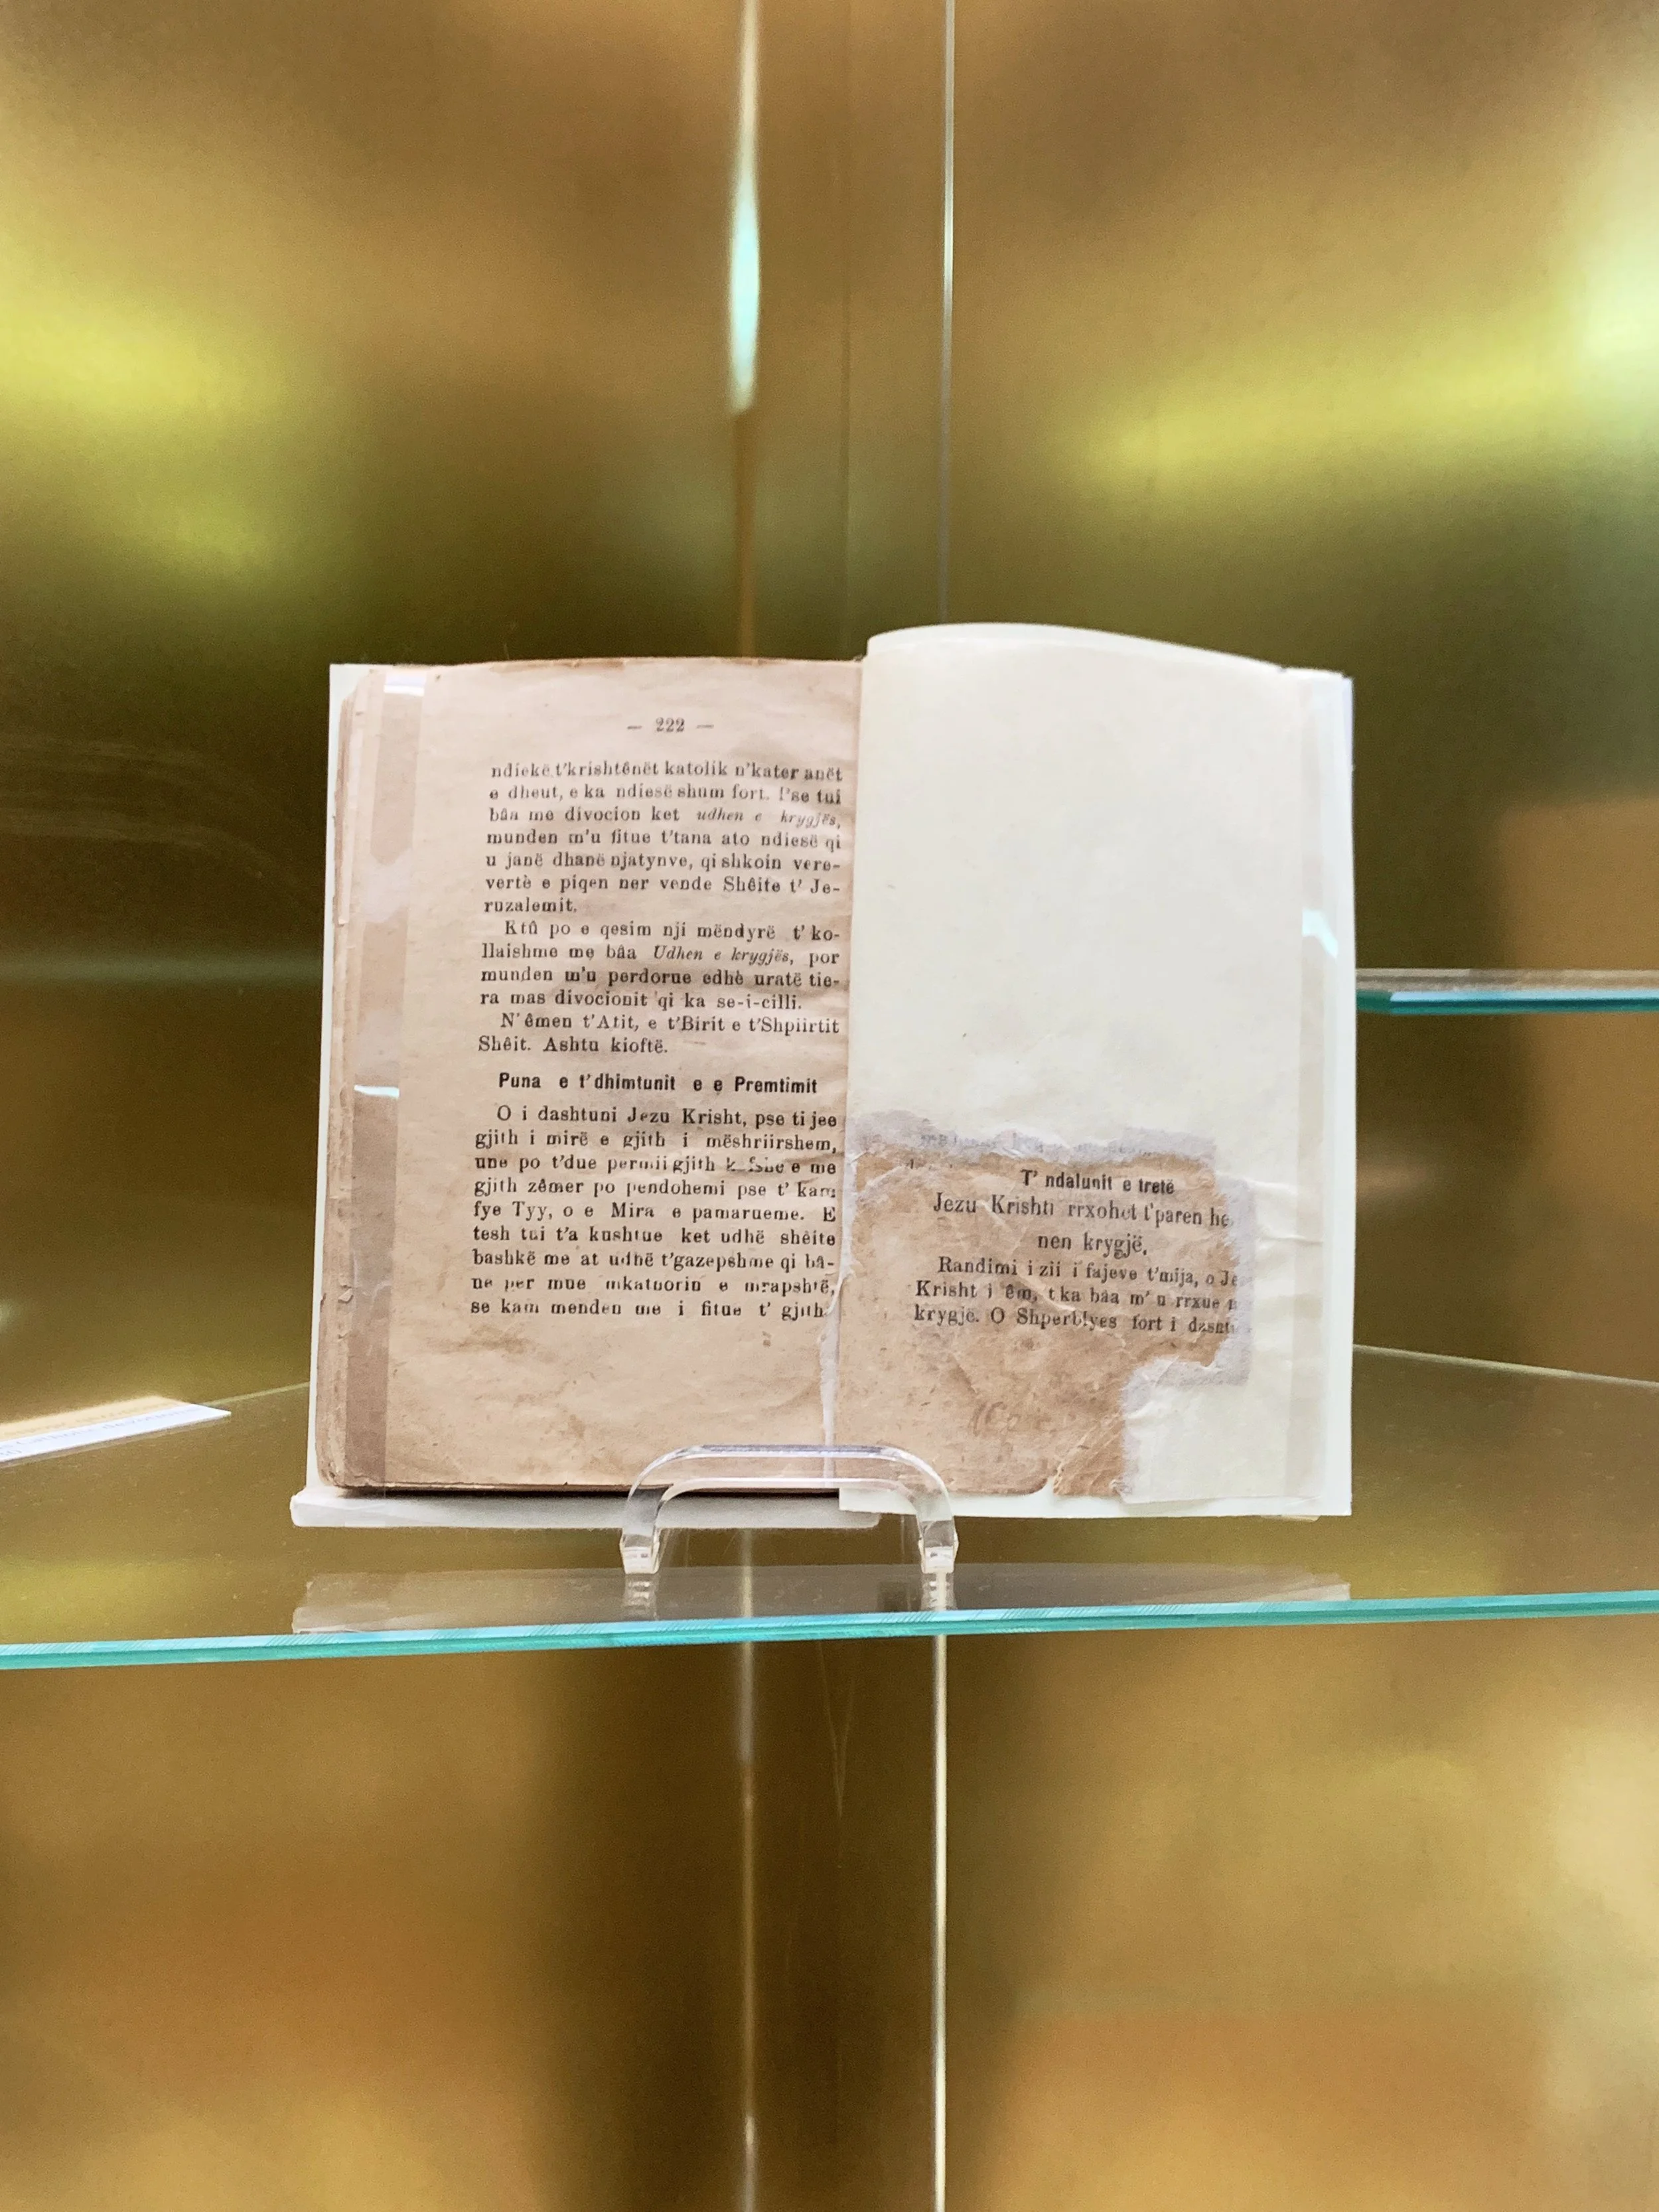 — 222 —
ndiekë t'krishtênët katolik n'kater anët
e dheut, e ka ndiesë shum fort. P'se tui
bâa me divocion ket udhen e krygjës,
munden m'u fitue t'tana ato ndiesë qi
u janë dhanë njatynve, qi shkoin vere-
vertè e piqen ner vende Shêite t' Je-
ruzalemit.
Ktû po e qesim nji mëndyrë t' ko-
llaishme me bâa Udhen e krygjës, por
munden m'u perdorue edhè uratë tie-
ra mas divocionit qi ka se-i-cilli.
N'êmen t'Atit, e t'Birit e t'Shpiirtit
Shêit. Ashtu kioftë.
Puna e t'dhimtunit e e Premtimit
O i dashtuni Jezu Krisht, pse ti jee
gjith i mirë e gjith i mëshriirshem,
une po t'due permii gjith e me
gjith zêmer po pendohemi pse t' kam
fye Tyy, o e Mira e pamarueme. E
tesh tui t'a kushtue ket udhë shêite
bashkë me at udhë t'gazepshme qi bâ-
ne per mue mkatuorin e mrapshtë,
se kam menden me i fitue t' gjith
T' ndalunit e tretë
Jezu Krishti rrxohet t'paren he
nen krygjë.
Randimi i zii i fajeve t'mija, o Je
Krisht i êm, t ka bâa m' u rrxue
krygjë. O Shperblyes fort i dasht